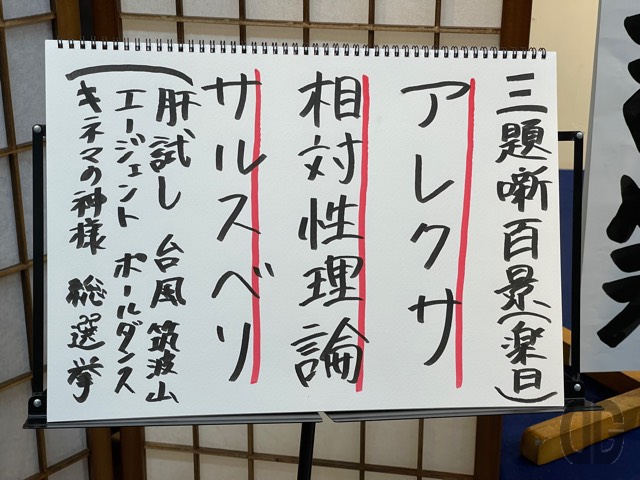 三題噺百景(楽日)
アレクサ
相対性理論
サルスベリ
(肝試し 台風 筑波山
エージェント ポールダンス
キネマの神様 総選挙